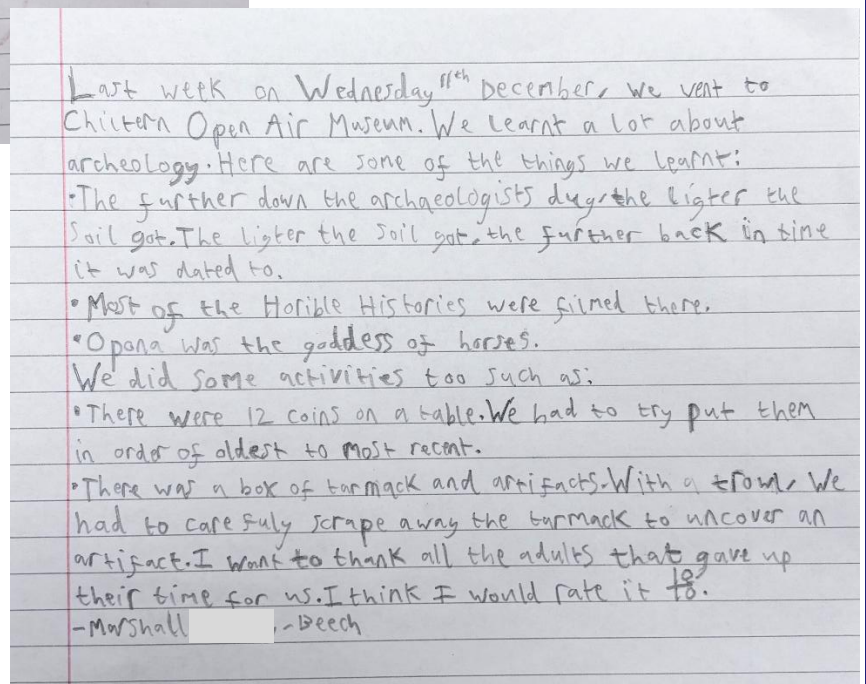 Last week on Wednesday 11th December, we went to
Chiltern Open Air Museum. We learnt a lot about
archeology. Here are some of the things we learnt:
•The further down the archaeologists dug, the ligter the
Soil got. The ligter the soil got, the further back in time
it was dated to.
• Most of the Horible Histories were filmed there.
•Opona was the goddess of horses.
We did some activities too such as:
•There were 12 coins on a table. We had to try put them
in order of oldest to most recent.
•There was a box of tarmack and artifacts. With a trowl, we
had to carefuly scrape away the tarmack to uncover an
artifact. I want to thank all the adults that gave up
their time for us. I think I would rate it 10/10.
-Marshall , -Beech